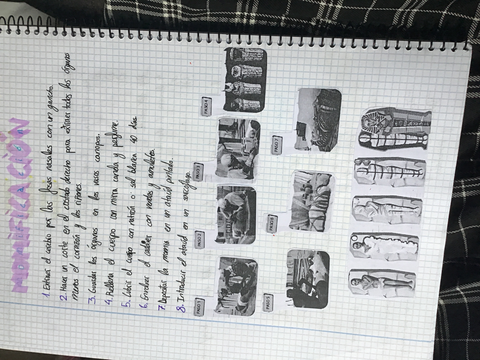 MOMIFICACIÓN
1. Extraer el cerebro por las fosas nasales con un gancho.
2. Hacer un corte en el costado derecho para extraer todos los órganos
menos el corazón y los riñones.
3. Guardar los órganos en los vasos canopos.
4. Rellenar el cuerpo con mirra canela y perfume.
5. Cubrir el cuerpo con natrón o sal blanca 40 días.
6. Envolver el cadáver con vendas y amuletos.
7. Depositar la momia en un ataúd pintado.
8. Introducir el ataúd en un sarcófago.
PASO 1
PASO 2
PASO 3
PASO 4
PASO 5
PASO 6
PASO 7